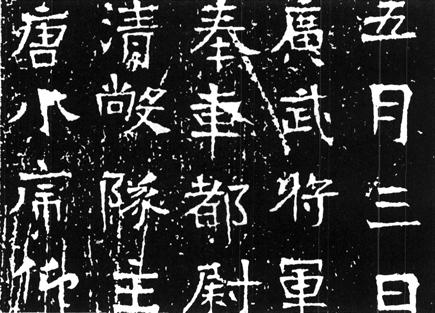 五月三日
廣武將軍
奉車都尉
清敞隊主
唐小席仰